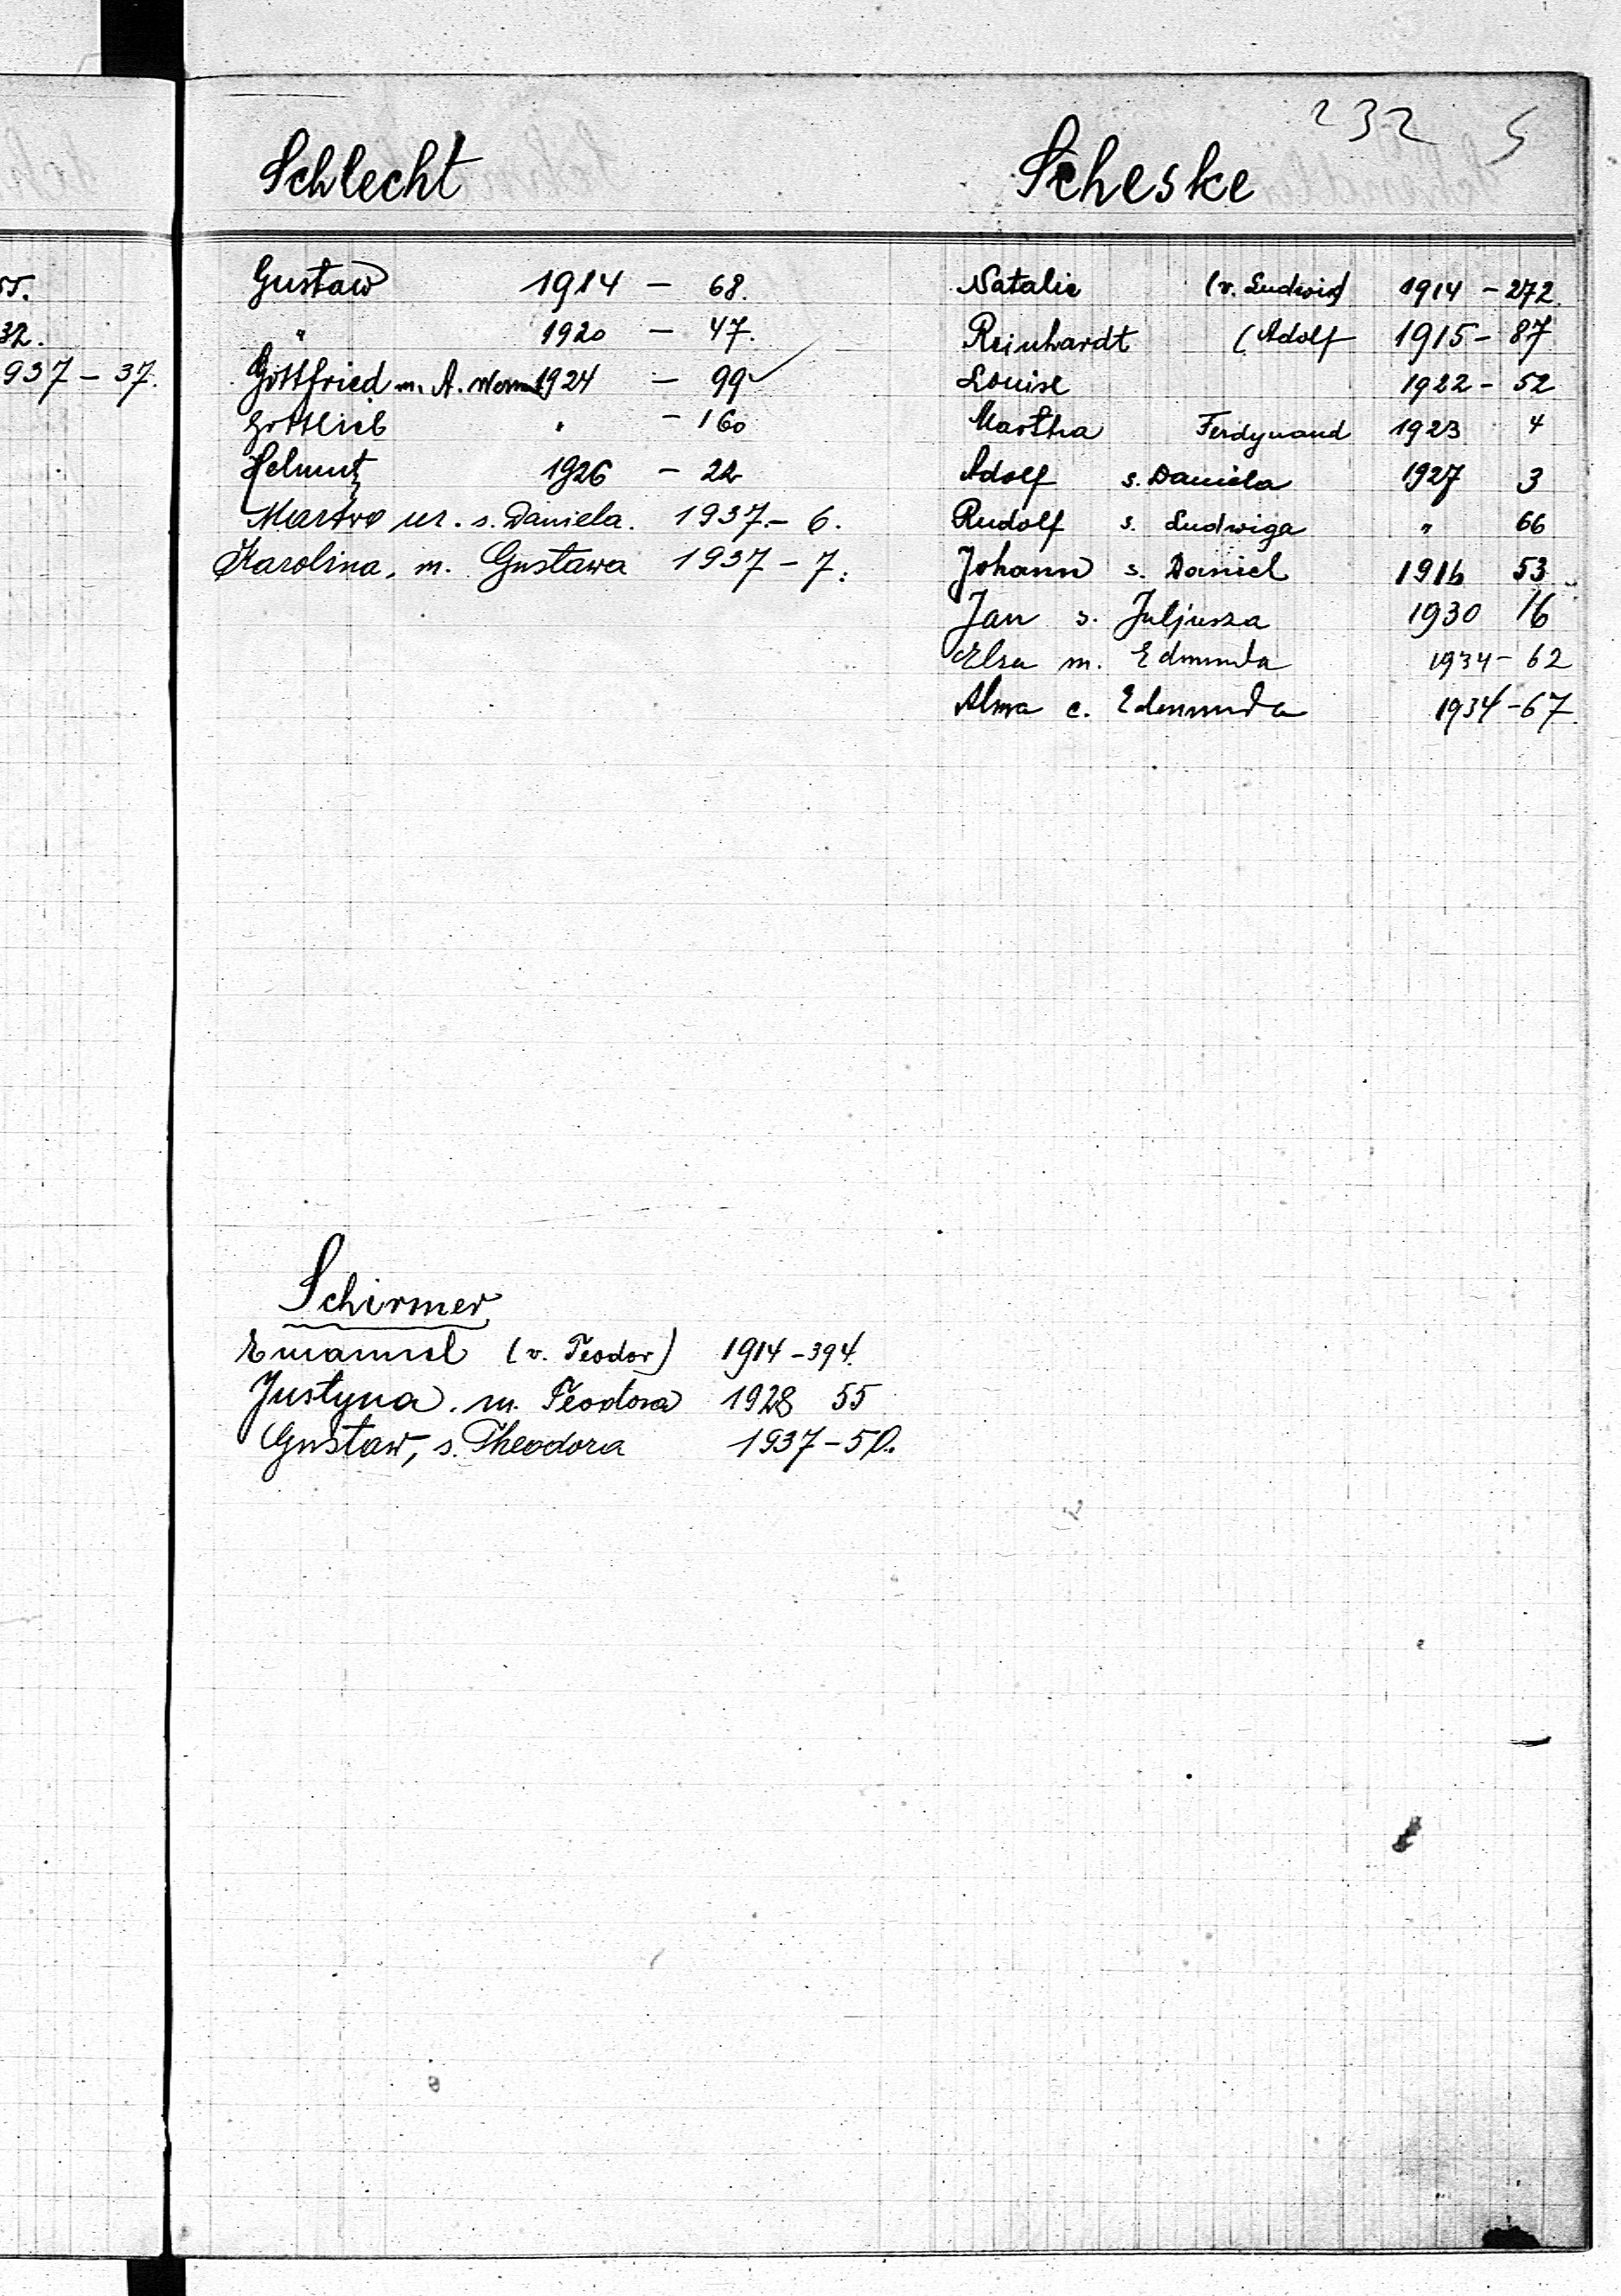 232 S
Schlecht
Gustaw 1914 - 68.
" 1920 - 47.
Gottfried m. A. 1924 - 99
Gottlieb " - 160
Helmut 1926 - 22
Martw ur. s. Daniela. 1937 - 6.
Karolina, m. Gustawa 1937 - 7.
Scheske
Natalie (v. Ludwig) 1914 - 272.
Reinhardt (Adolf 1915 - 87
Louise 1922 - 52
Martha Ferdynand 1923 4
Adolf s. Daniela 1927 3
Rudolf s. Ludwiga " 66
Johann s. Daniel 1916 53
Jan s. Juljusza 1930 16
Elsa m. Edmunda 1934 - 62
Alma c. Edmunda 1934 - 67.
Schirmer
Emanuel (v. Teodor) 1914 - 394.
Justyna. m. Teodora 1928 55
Gustaw, s. Theodora 1937 - 50.
55.
32.
937 - 37.